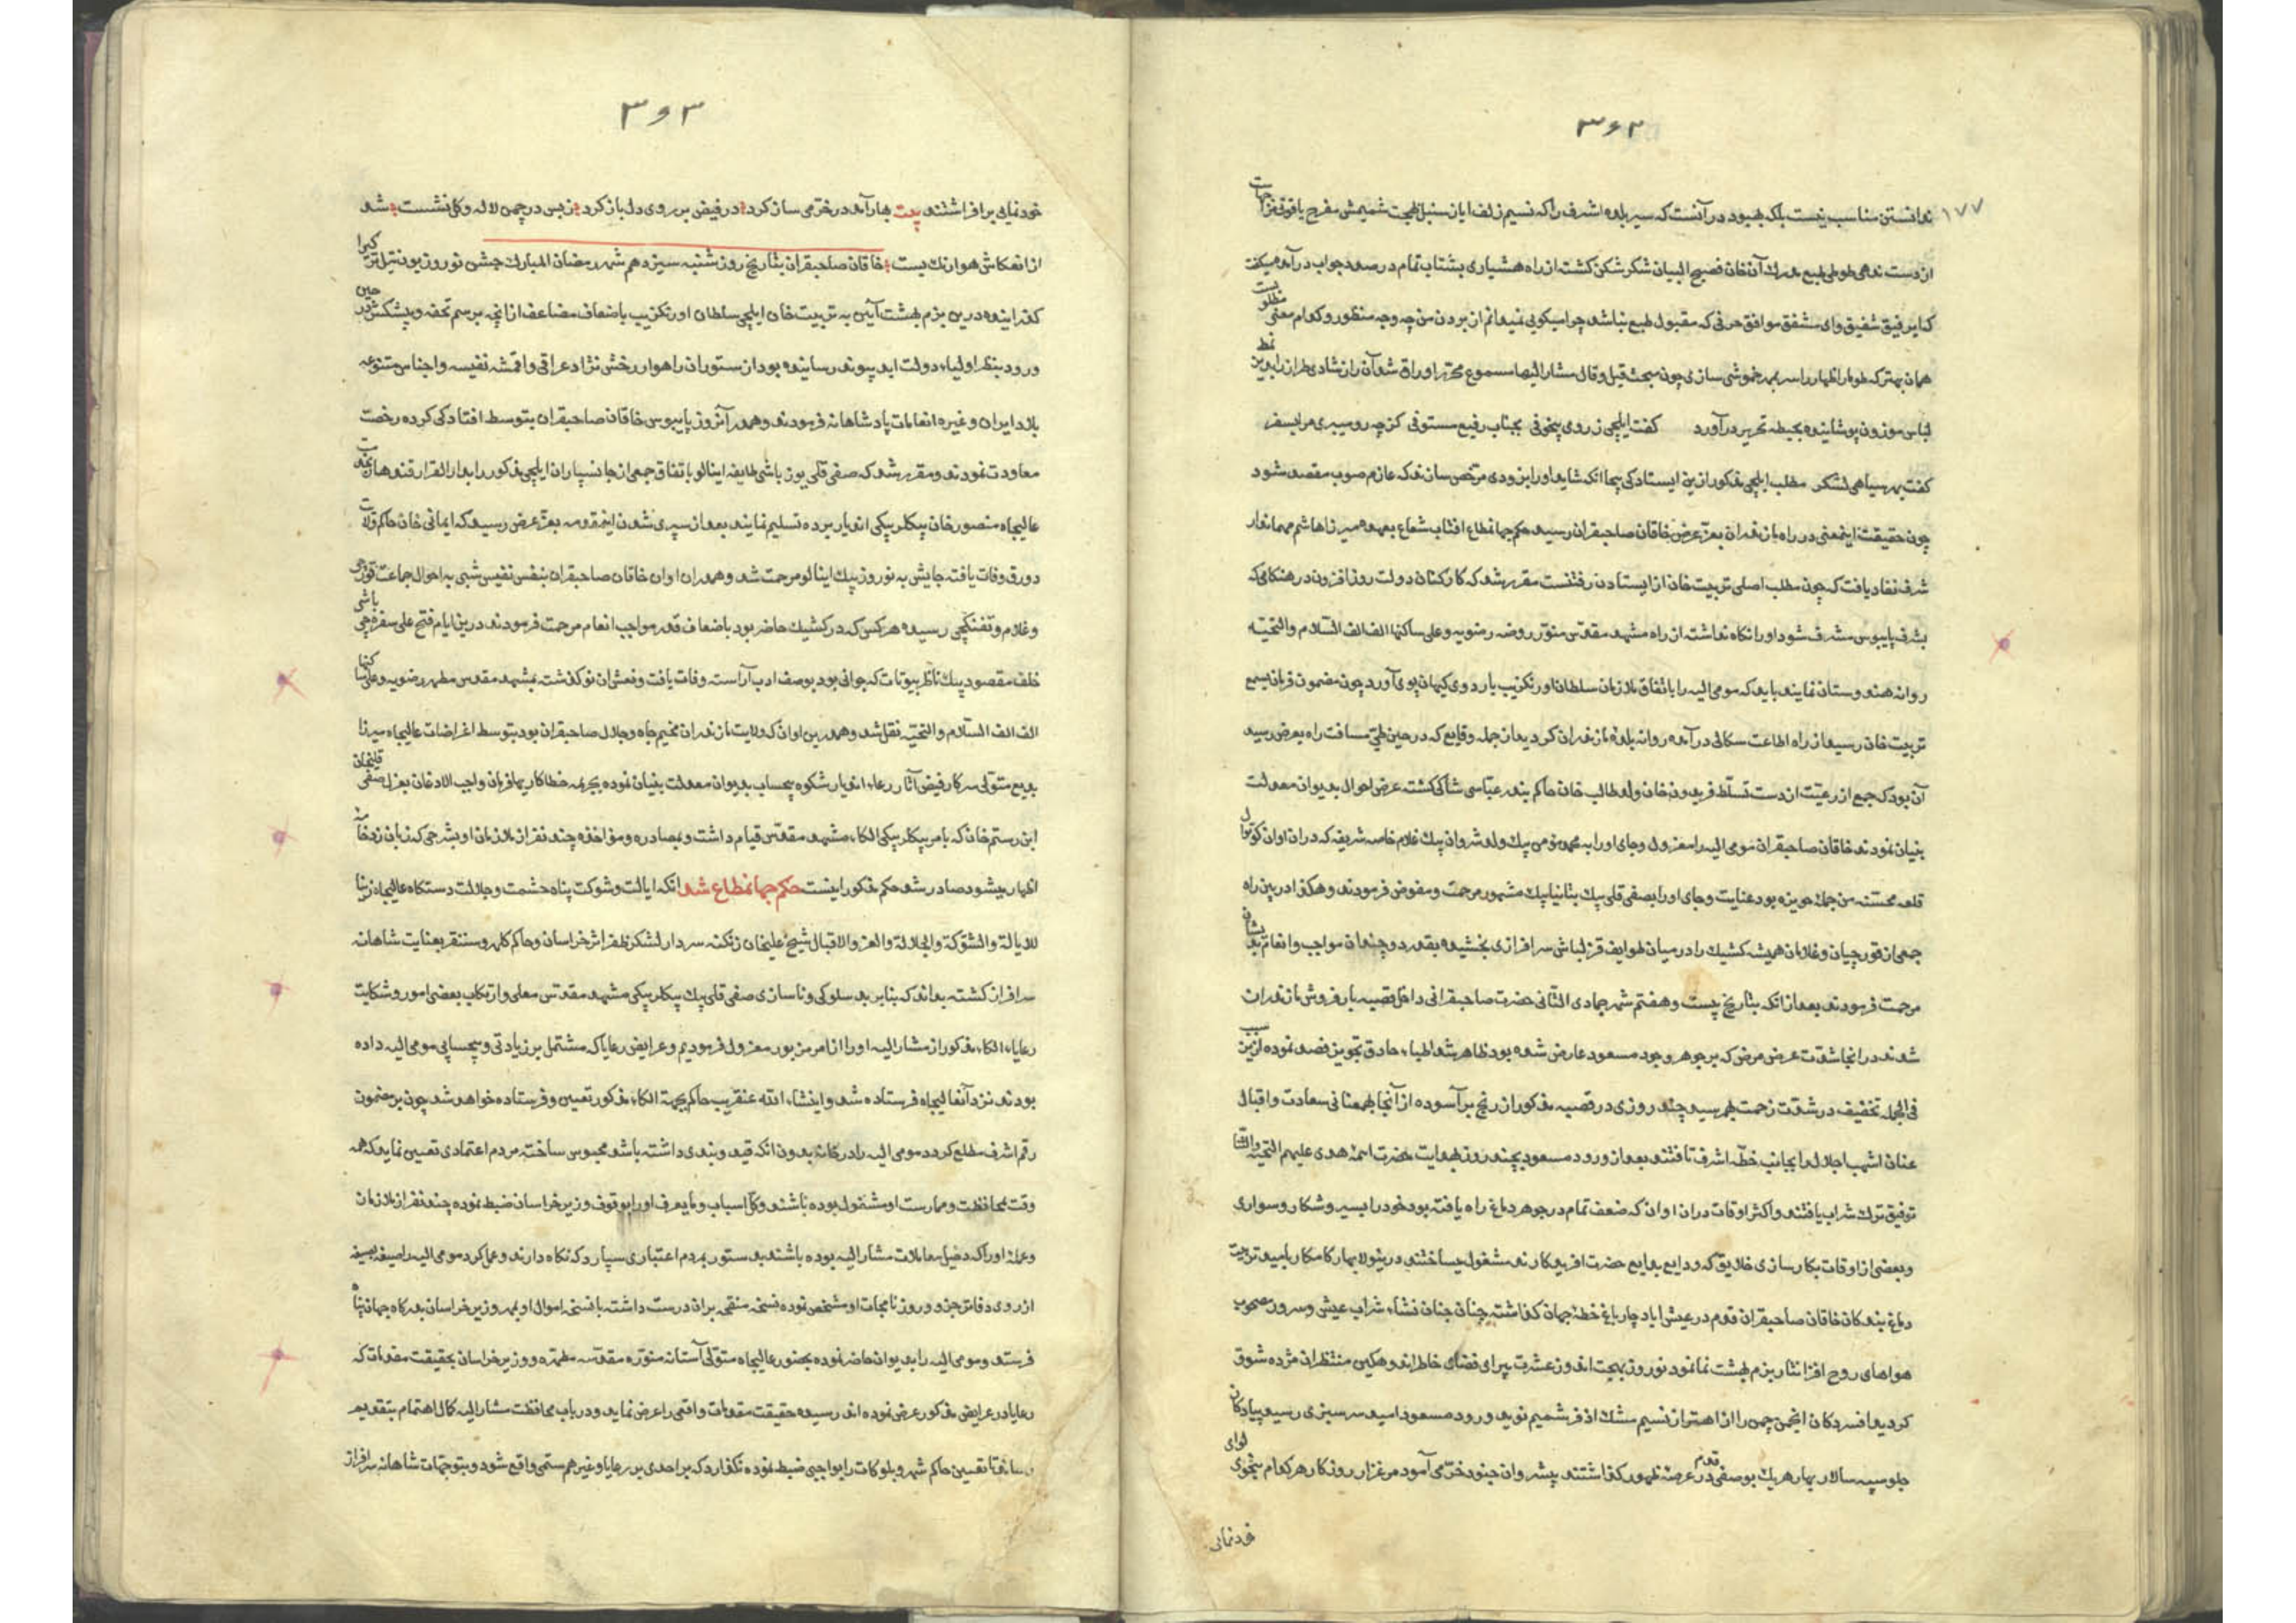 ۳۶۲
۱۷۷
ندانستن مناسب نیست بلکه بهبود در آنست که سیر بلده اشرف را که نسیم زلف ایان سنبل بهجت شمیمش مفرح یاقوتی حیات
از دست ندهی طوطی طبع مدرك آن خان فصیح البیان شکر شکن کشته از راه هشیاری بشتاب تمام در صدد جواب درآمد میکفت
که ای رفیق شفیق و ای مشفق موافق حرفی که مقبول طبع نباشد چرا میکویی نمیدانم از بردن من چه وجه منظور و کدام معنی مطلوبست
همان بهتر که طومار اظهار را سر بمهر خموشی سازی چون مبحث قیل و قال مشار الیها مسموع محرر اوراق شد آن را نشادی طراز از بدین نمط
لباس موزون پوشانیده بحیطه تحریر درآورد کفت ایلچی ز روی پخوفی بجناب رفیع مستوفی کز چه رو میبری مرا بسفر
کفت بهر سیاهی لشکر مطلب ایلچی مذکور ازین ایستادکی بیجا انکه شاید او را بزودی مرخص سازند که عازم صوب مقصد شود
چون حقیقت اینمعنی در راه مازندران بعز عرض خاقان صاحبقران رسید حکم جهانمطاع افتاب شعاع بعهده میرزا هاشم مهماندار
شرف نفاد یافت که چون مطلب اصلی تربیت خان از ایستادن رفتنست مقرر شد که کارکنان دولت روز افزون در هنکامی که
بشرف پایبوس مشرف شود او را نکاه نداشته از راه مشهد مقدس منور روضه رضویه و علی ساکنها الف الف السلام والتحیه
روانه هندوستان نمایند باید که مومی الیه را باتفاق ملازمان سلطان اورنکزیب باردوی کیهان پوی آورد چون مضمون فرمان بسمع
تربیت خان رسید از راه اطاعت سکالی در آمده روانه بلده مازندران کردید از جمله وقایع که در حین طی مسافت راه بعرض رسید
آن بود که جمع از رعیت از دست تسلط فریدون خان ولد طالب خان حاکم بندر عباسی شاکی کشته عرض احوال بدیوان معدلت
بنیان نمودند خاقان صاحبقران مومی الیه را معزول و جای او را به محمد مومن بیك ولد شروان بیك غلام خاصه شریفه که دران اوان کوتوال
قلعه محسنه من جمله حویزه بود عنایت و جای او را بصفی قلی بیك بنانیا بیك مشهور مرحمت و مفوض فرمودند و هکذا در بین راه
جمعی از قورچیان و غلامان همیشه کشیك را در میان طوایف قزلباش سرافرازی بخشیده بقدر دو چندان مواجب و انعام بدیشان
مرحمت فرمودند بعد از انکه بتاریخ بیست و هفتم شهر جمادی الثانی حضرت صاحبقرانی داخل قصبه بارفروش مازندران
شدند در انجا شدت عرض مرض که بر جوهر وجود مسعود عارض شده بود ظاهر شد اطباء حاذق تجویز فصد نموده ازین سبب
فی الجمله تخفیف در شدت زحمت بهم رسید چند روزی در قصبه مذکور از رنج برآسوده از آنجا بهمعنانی سعادت و اقبال
عنان اشهب اجلال را بجانب خطّه اشرف تافتند بعد از ورود مسعود بچند روز بهدایت حضرت ائمه هدی علیهم التحیه والثنا
توفیق ترك شراب یافتند و اکثر اوقات دران اوان که ضعف تمام در جوهر دماغ راه یافته بود خود را بسیر و شکار و سواری
و بعضی از اوقات بکارسازی خلایق که ودایع بدایع حضرت افریدکارند مشغول میساختند درینولا بهار کامکار بامید تربیت
دماغ بندکان خاقان صاحبقران قدم در عیش اباد چار باغ خطه جهان کذاشته چنان جنان نشاء شراب عیش و سرور مصحوب
هواهای روح افزا نثار بزم بهشت نما نمود نوروز بهجت اندوز عشرت پیرای فضای خاطر اندوهکین منتظران مژده شوق
کردید افسردکان انجمن چمن را از اهتزاز نسیم مشك اذفر شمیم نوید ورود مسعود امید سرسبزی رسید پیادکان
جلو سپه سالار بهار هریك بوصفی قدم در عرصه ظهور کذاشتند پیشروان جنود خرمی آمود مرغزار روزکار هر کدام بنحوی لوای
خودنمایی
۳۶۳
خودنمایی برافراشتند بیت بهار آمد در خرمی ساز کرد در فیض بر روی دل باز کرد ز بس در چمن لاله و کل نشست شد
از انعکاش هوا رنك بست خاقان صاحبقران بتاریخ روز شنبه سیزدهم شهر رمضان المبارك جشن نوروز بودن تیل ترکیرا
کذرانیده درین بزم بهشت آیین به تربیت خان ایلچی سلطان اورنکزیب باضعاف مضاعف از انچه برسم تحفه و پیشکش در حین
ورود بنظر اولیاء دولت ابد پیوند رسانیده بود از ستوران راهوار رخش نژاد عراقی و اقمشه نفیسه و اجناس متنوعه
بلاد ایران و غیره انعامات پادشاهانه فرمودند و همدر آنروز پایبوس خاقان صاحبقران بتوسط افتادکی کرده رخصت
معاودت نمودند و مقرر شد که صفی قلی یوز باشی طایفه اینالو باتفاق جمعی از جانسپاران ایلچی مذکور را بدار القرار قندهار نزد
عالیجاه منصور خان بیکلربیکی اندیار برده تسلیم نمایند بعد از سپری شدن اینمقدمه بعز عرض رسید که ایمانی خان حاکم ولایت
دورق وفات یافته جایش به نوروز بیك اینالو مرحمت شد و همدران اوان خاقان صاحبقران بنفس نفیس شبی به احوال جماعت قورچی
و غلام و تفنکچی رسیده هر کس که در کشیك حاضر بود باضعاف قدر مواجب انعام مرحمت فرمودند درین ایام فتح علی سفره چی باشی
خلف مقصود بیك ناظر بیوتات که جوانی بود بوصف ادب آراسته وفات یافت و نعش ان نوکذشته بمشهد مقدس مطهر رضویه و علی ساکنها
الف الف السلام و التحیه نقل شد و همدرین اوان که ولایت مازندران مخیم جاه و جلال صاحبقران بود بتوسط اغراضات عالیجاه میرزا
بدیع متولی سرکار فیض آثار رعاء اندیار شکوه بیحساب بدیوان معدلت بنیان نموده بجریمه خطا کاریها فرمان واجب الاذعان بعزل صفی قلیخان
ابن رستم خان که بامر بیکلربیکی الکاء مشهد مقدس قیام داشت و بمصادره و مواخذه چند نفر از ملازمان او بشرحی که زبان زد خامه
اظهار میشود صادر شد حکم مذکور اینست حکم جهانمطاع شد انکه ایالت و شوکت پناه حشمت و جلالت دستکاه عالیجاه زینا
للایالة والشوکة والجلالة والعز والاقبال شیخ علیخان زنکنه سردار لشکر ظفر اثر خراسان و حاکم کلهر و سنقر بعنایت شاهانه
سرافراز کشته بداند که بنابر بد سلوکی و ناسازی صفی قلی بیك بیکلربیکی مشهد مقدس معلی و ارتکاب بعضی امور و شکایت
رعایاء الکاء مذکور از مشار الیه او را از امر مزبور معزول فرمودیم و عرایض رعایا که مشتمل بر زیادتی و بیحسابی مومی الیه داده
بودند نزد آنعالیجاه فرستاده شد و اینشاء الله عنقریب حاکم بجهت الکاء مذکور تعیین و فرستاده خواهد شد چون بر مضمون
رقم اشرف مطلع کردد مومی الیه را در خانه بدون انکه قید و بندی داشته باشد محبوس ساخته مردم اعتمادی تعیین نماید که همه
وقت بمحافظت و ممارست او مشغول بوده باشند و کل اسباب و ما یعرف او را بوقوف وزیر خراسان ضبط نموده چند نفر از ملازمان
و عمله او را که دخیل معاملات مشار الیه بوده باشند بدستور بمردم اعتباری سپارد که نکاه دارند و عملکرد مومی الیه را صیغه بصیغه
از روی دفاتر جزو و روزنامجات او مشخص نموده نسخه منقحی بران درست داشته با نسخه اموال او بمهر وزیر خراسان بدرکاه جهان پناه
فرستد و مومی الیه را بدیوان حاضر نموده بحضور عالیجاه متولی آستانه منوره مقدسه مطهره و وزیر خراسان بحقیقت مقدمات که
رعایا در عرایض مذکور عرض نموده اند رسیده حقیقت مقدمات واقعی را عرض نماید و در باب محافظت مشار الیه کمال اهتمام بتقدیم
رساند تا تعیین حاکم شهر و بلوکات را بواجبی ضبط نموده نکذارد که بر احدی بر رعایا و غیرهم ستمی واقع شود و بتوجهات شاهانه سرافراز